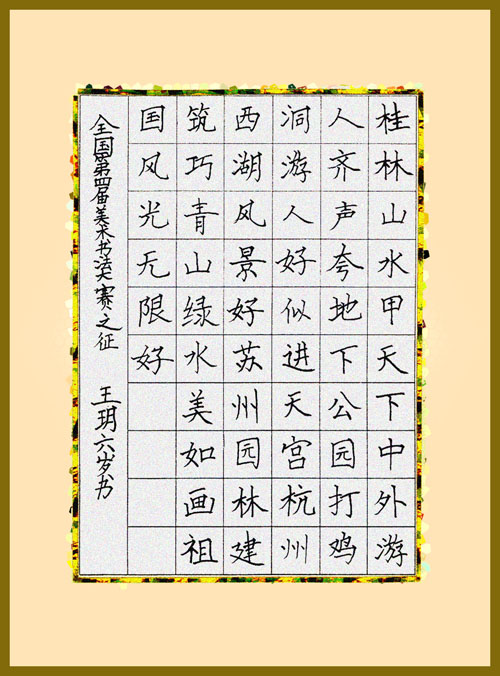 桂林山水甲天下中外游
人齐声夸地下公园打鸡
洞游人好似进天宫杭州
西湖风景好苏州园林建
筑巧青山绿水美如画祖
国风光无限好
全国第四届美术书法大赛之征 王玥六岁书